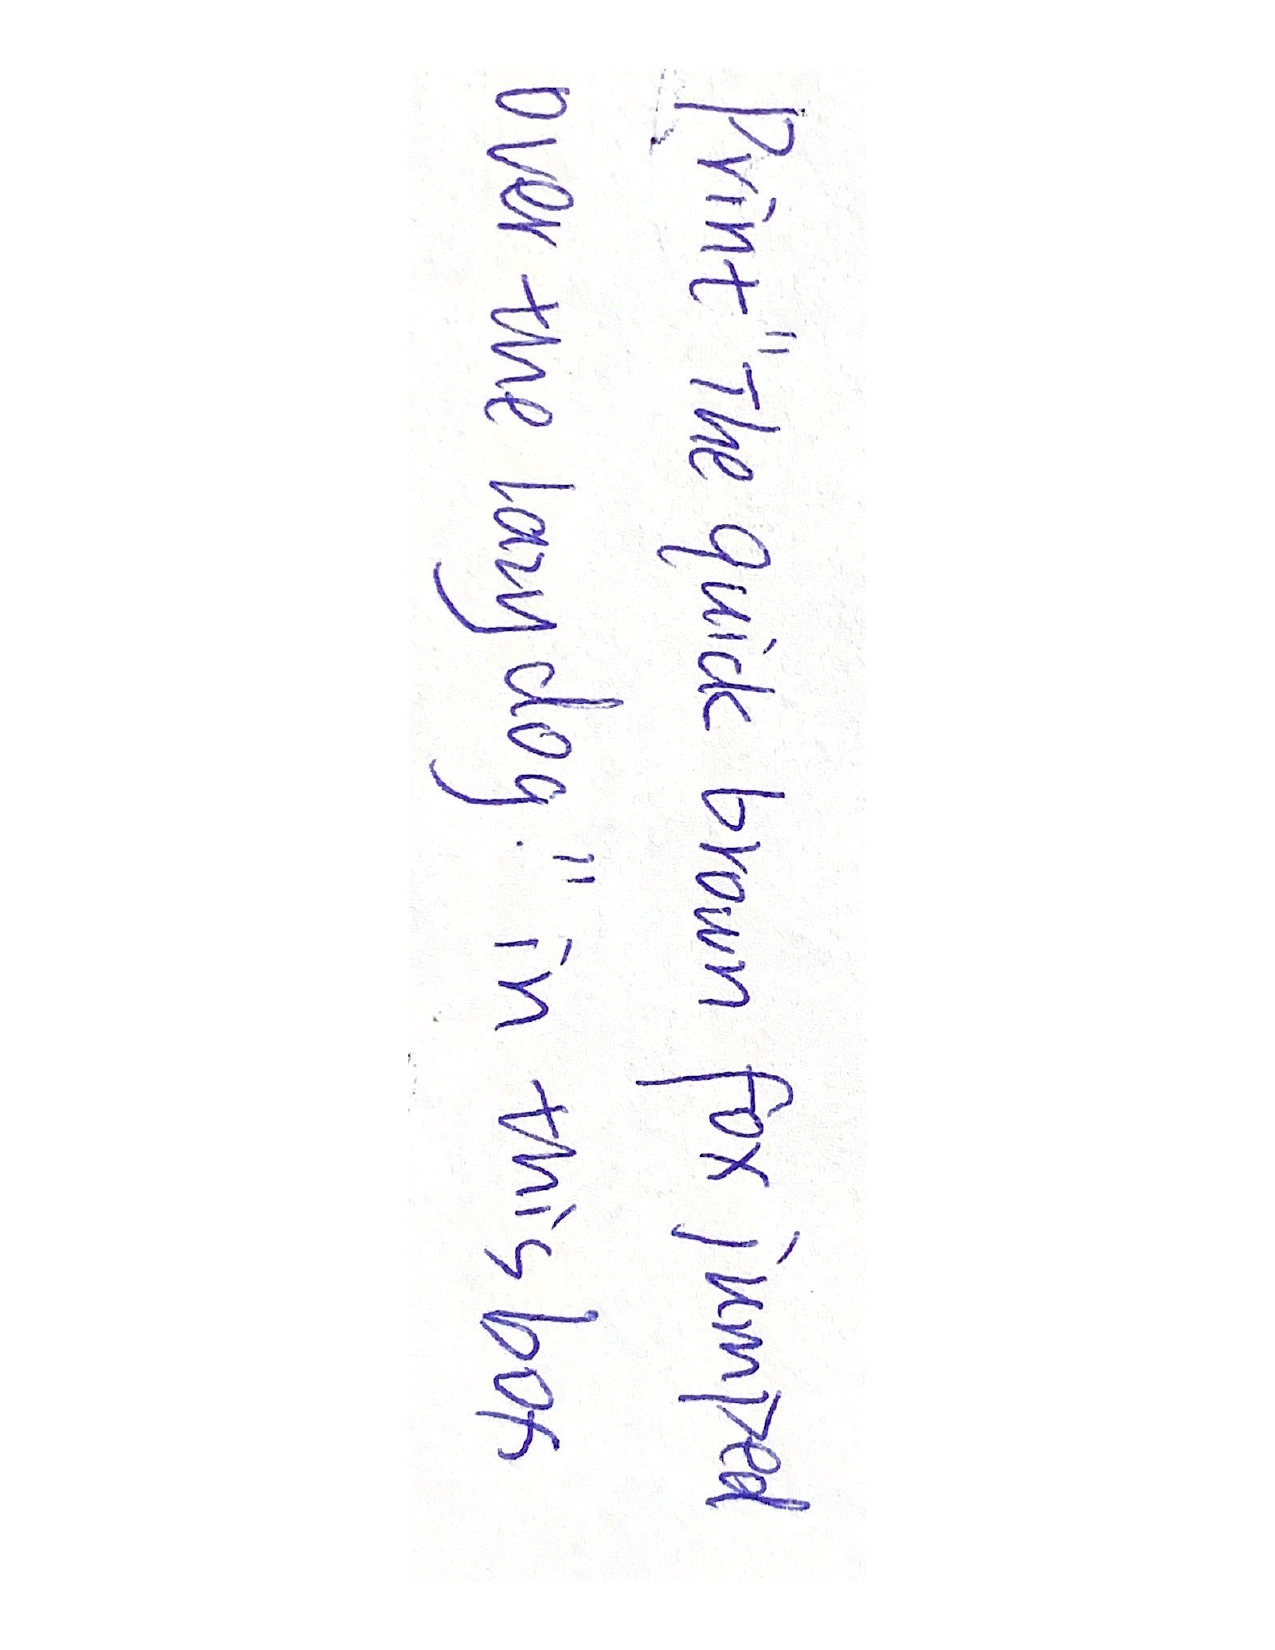 Print "The quick brown fox jumped
over the lazy dog." in this box